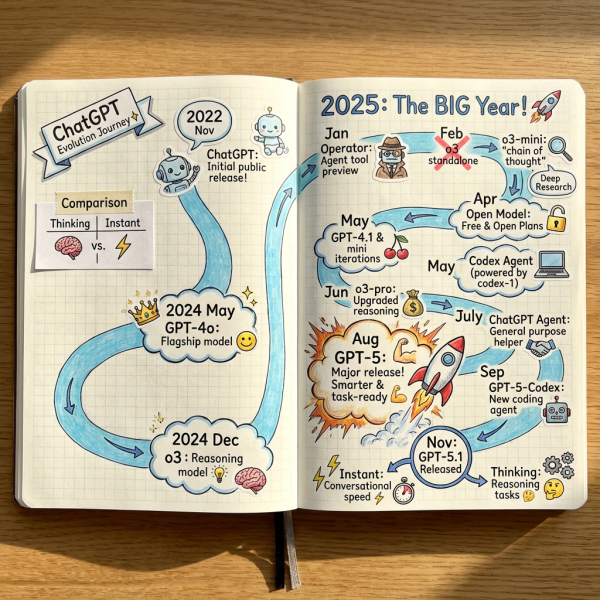 ChatGPT
Evolution Journey
2022
Nov
ChatGPT:
Initial public
release!
Comparison
Thinking | Instant
vs.
2024 May
GPT-4o:
Flagship model
2024 Dec
o3: Reasoning
model
2025: The BIG Year!
Jan
Operator:
Agent tool
preview
Feb
o3
standalone
o3-mini:
"chain of
thought"
Deep
Research
Apr
Open Model:
Free & Open Plans
May
GPT-4.1 &
mini
iterations
May
Codex Agent
(powered by
codex-1)
Jun
o3-pro:
Upgraded
reasoning
$
July
ChatGPT Agent:
General purpose
helper
Aug
GPT-5:
Major release!
Smarter &
task-ready
Sep
GPT-5-Codex:
New coding
agent
Nov:
GPT-5.1
Released
Instant:
Conversational
speed
Thinking:
Reasoning
tasks